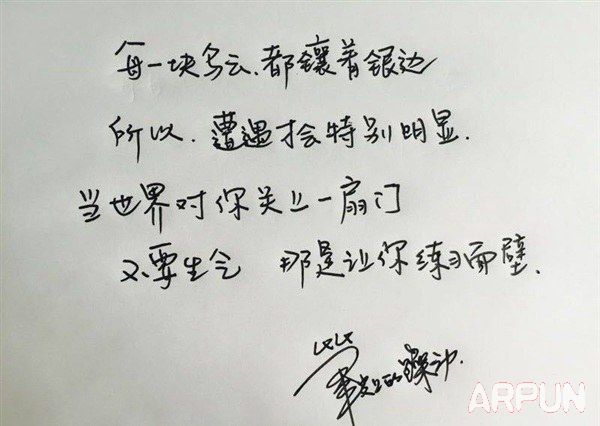 每一块乌云、都镶着银边
所以、遭遇才会特别明显.
当世界对你关上一扇门
不要生气 那是让你练习面壁.
的躁动.
ARPUN